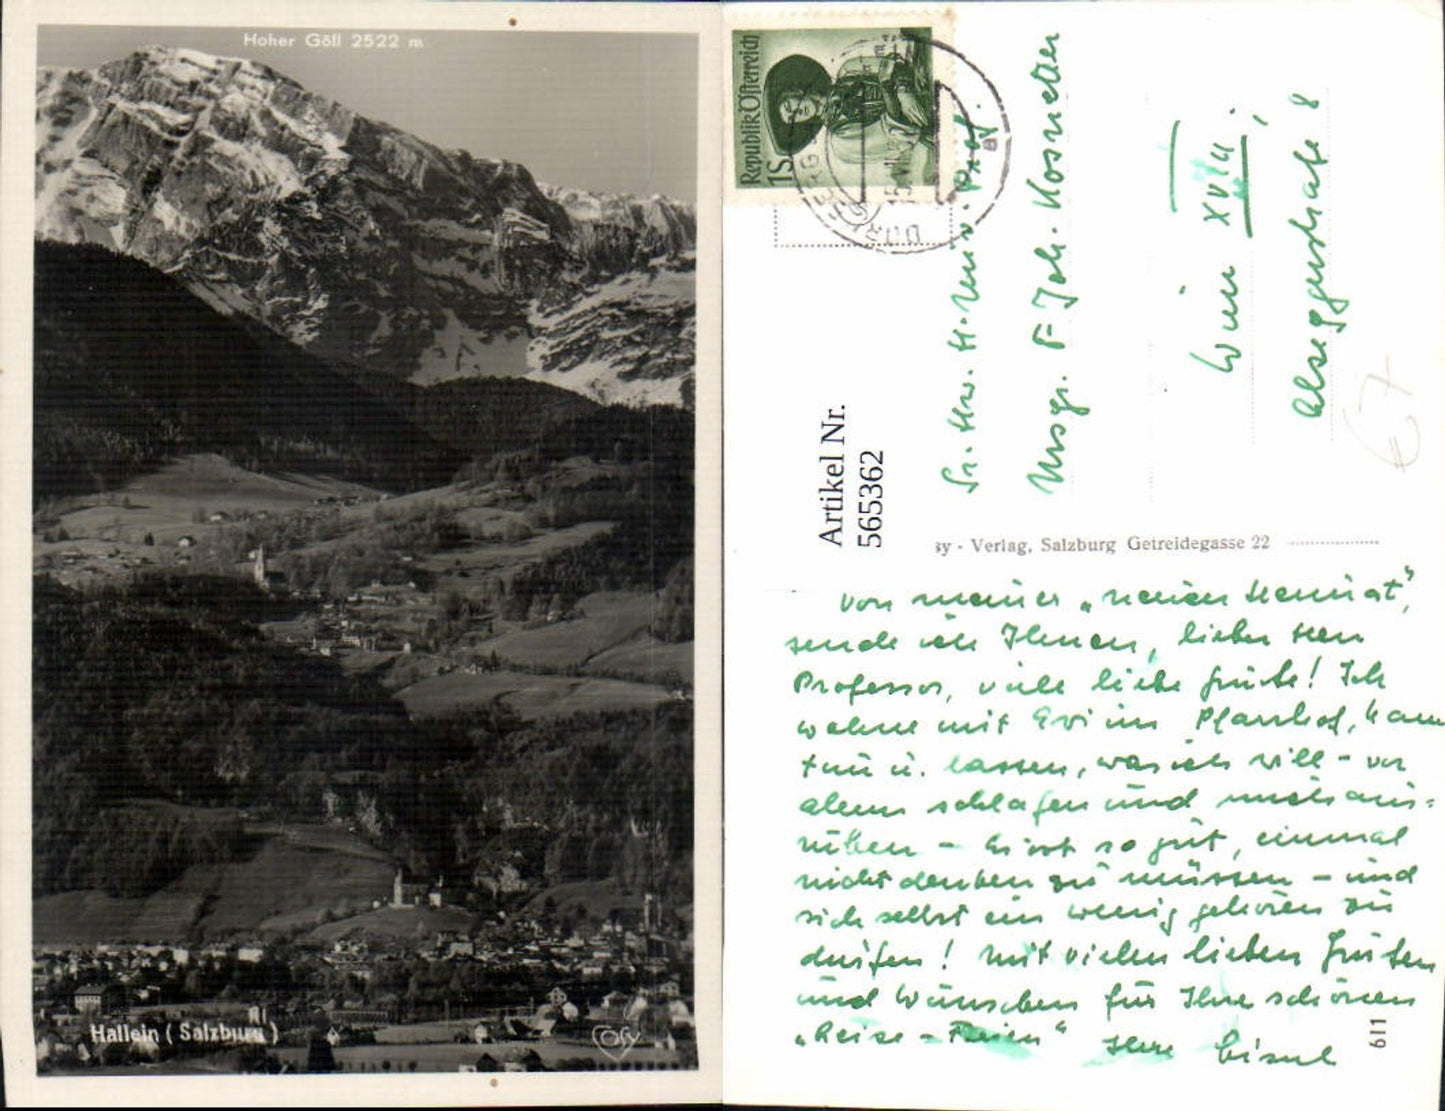 Hoher Göll 2522 m
Hallein (Salzburg)
Cosy
Republik Österreich
1S
Artikel Nr.
565362
Sr. Hw. H. Univ. Prof.
Msgr. Joh. Kosnetter
Wien XVIII.,
Alseggerstraße 8
€7
sy - Verlag, Salzburg Getreidegasse 22
von meiner „neuen Heimat",
sende ich Ihnen, lieber Herr
Professor, viele liebe Grüße! Ich
wohne mit Evi im Pfarrhof, kann
tun u. lassen, was ich will - vor
allem schlafen und mich aus-
ruhen - Es ist so gut, einmal
nicht denken zu müssen - und
sich selbst ein wenig gehören zu
dürfen! Mit vielen lieben Grüßen
und Wünschen für Ihre schönen
„Reise-Ferien" Ihre
611